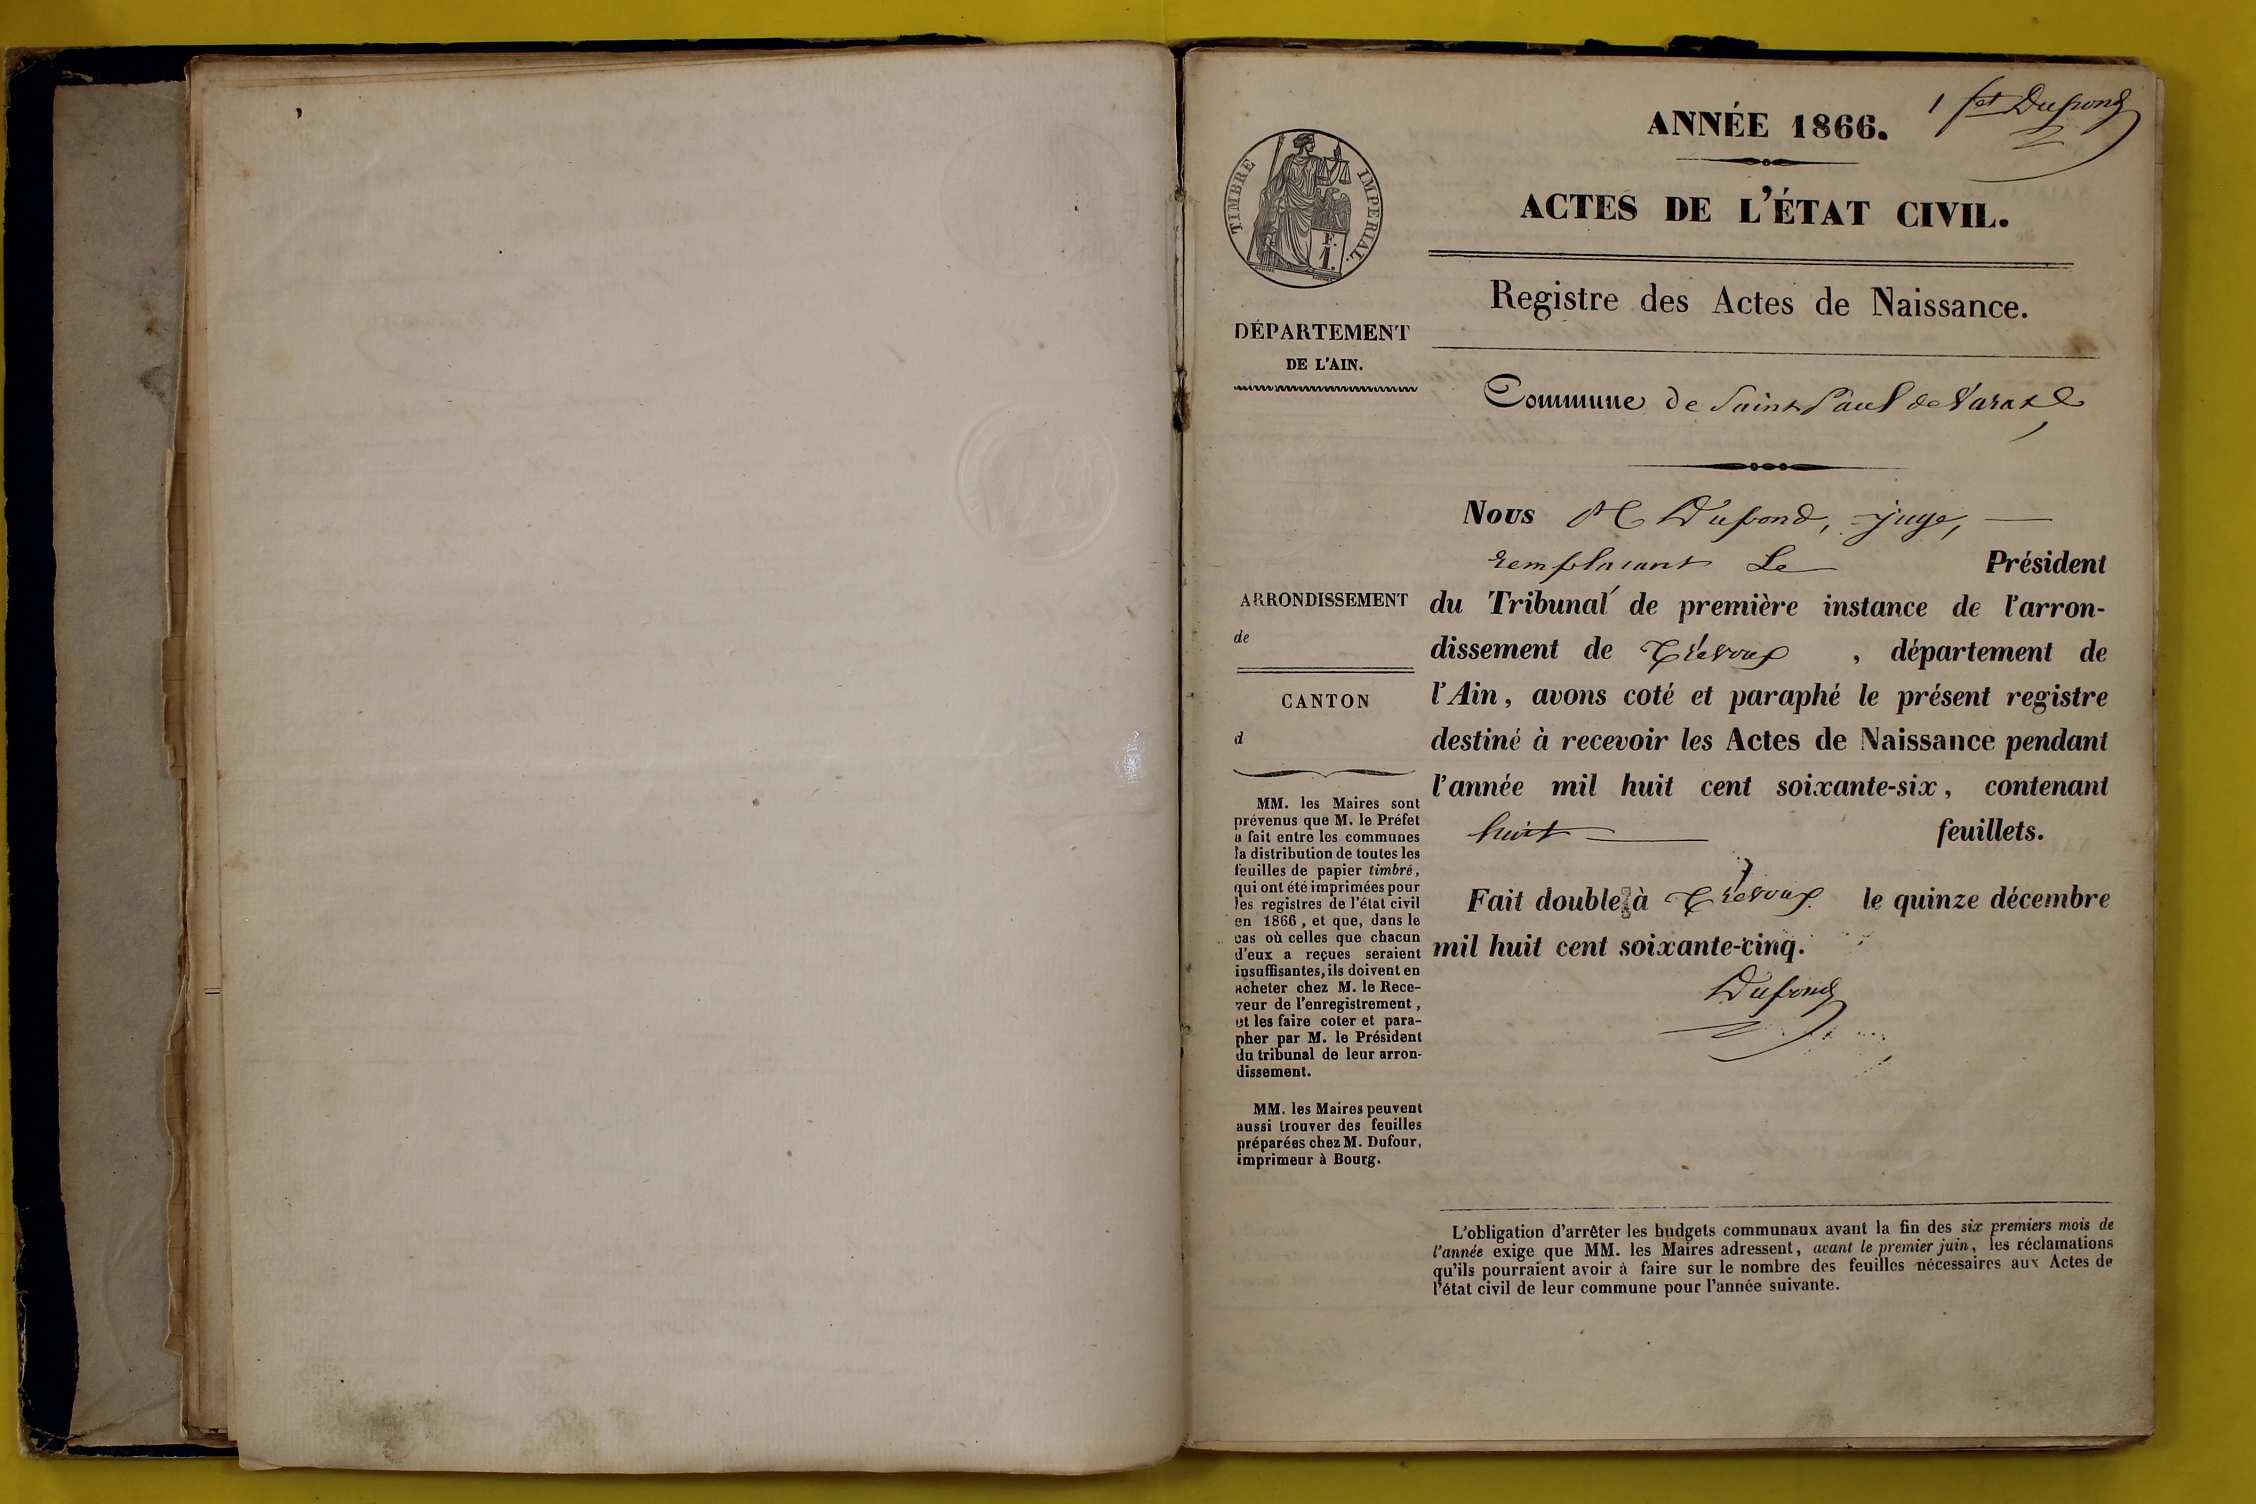 1 fet Dupond
ANNÉE 1866.
ACTES DE L'ÉTAT CIVIL.
TIMBRE IMPERIAL.
F.
1.
Registre des Actes de Naissance.
DÉPARTEMENT
DE L'AIN.
Commune de Saint Paul de Varax
Nous Dupond, juge,
remplacant Le Président
ARRONDISSEMENT
de
du Tribunal de première instance de l'arron-
dissement de Trévoux , département de
l'Ain, avons coté et paraphé le présent registre
destiné à recevoir les Actes de Naissance pendant
l'année mil huit cent soixante-six, contenant
huit feuillets.
Fait double à Trévoux le quinze décembre
mil huit cent soixante-cinq.
Dupond
CANTON
d
MM. les Maires sont
prévenus que M. le Préfet
a fait entre les communes
la distribution de toutes les
feuilles de papier timbré,
qui ont été imprimées pour
les registres de l'état civil
en 1866, et que, dans le
cas où celles que chacun
d'eux a reçues seraient
insuffisantes, ils doivent en
acheter chez M. le Rece-
veur de l'enregistrement,
et les faire coter et para-
pher par M. le Président
du tribunal de leur arron-
dissement.
MM. les Maires peuvent
aussi trouver des feuilles
préparées chez M. Dufour,
imprimeur à Bourg.
L'obligation d'arrêter les budgets communaux avant la fin des six premiers mois de
l'année exige que MM. les Maires adressent, avant le premier juin, les réclamations
qu'ils pourraient avoir à faire sur le nombre des feuilles nécessaires aux Actes de
l'état civil de leur commune pour l'année suivante.